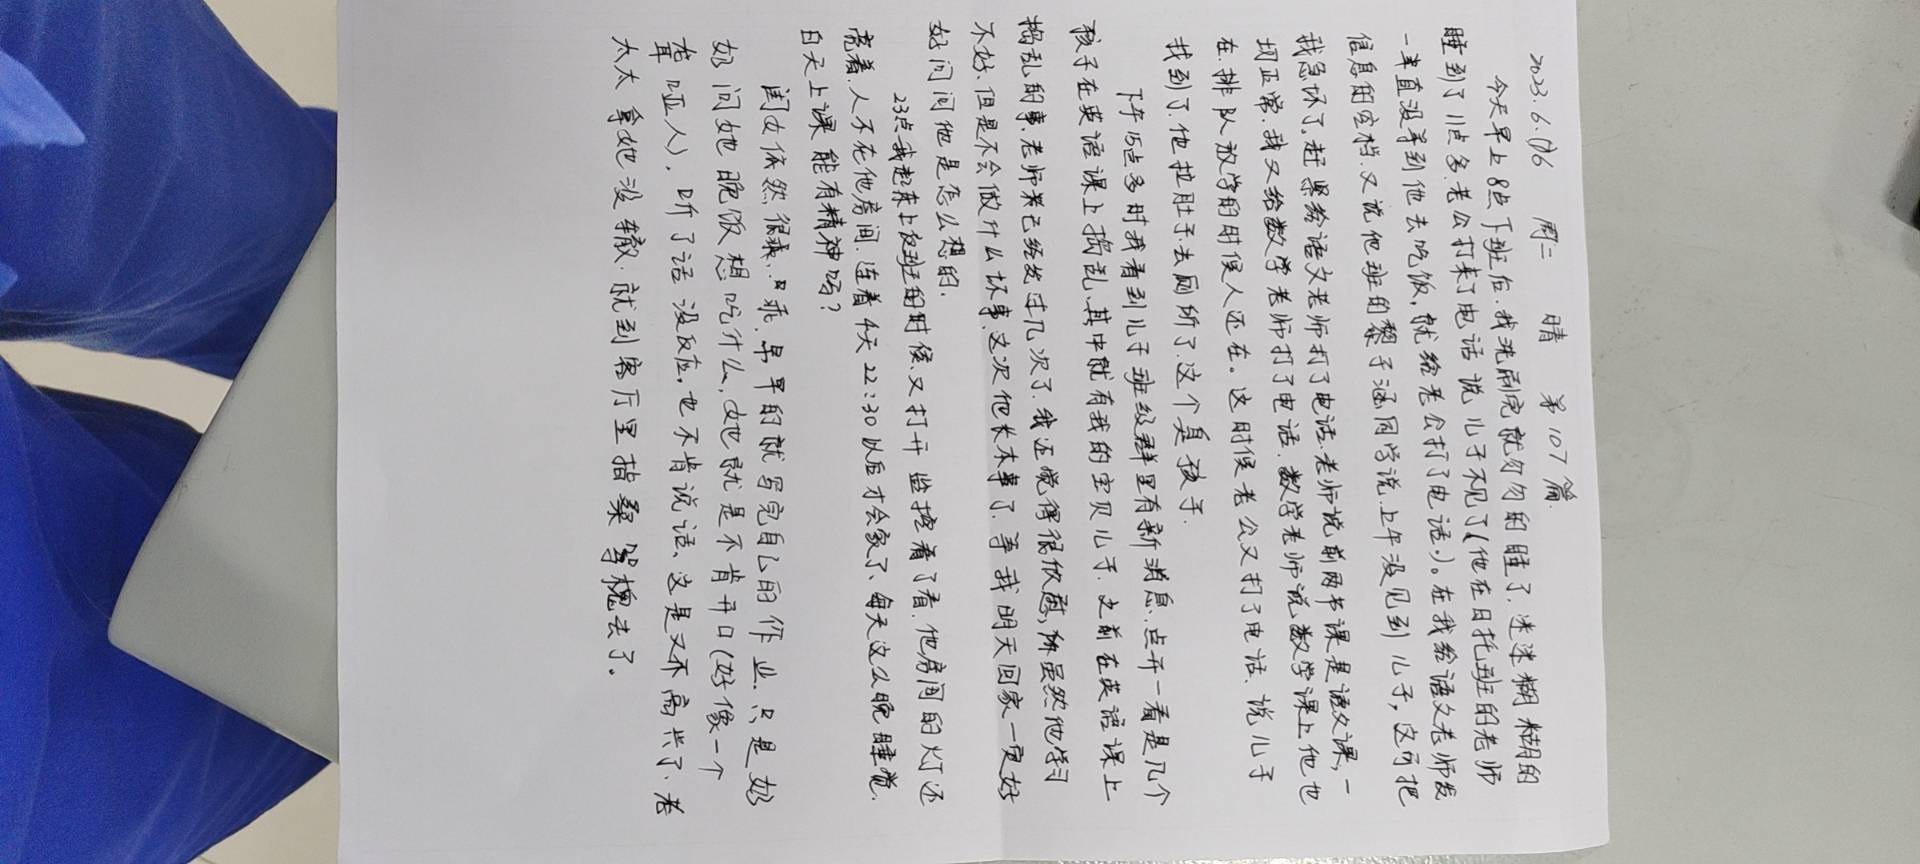 2023.6.06 周二 晴 第107篇.
今天早上8点下班后.我洗刷完就匆匆的睡了.迷迷糊糊的
睡到了11点多.老公打来了电话说儿子不见了(他在日托班的老师
一直没等到他去吃饭,就给老公打了电话。).在我给语文老师发
信息的空档.又说他班的黎子涵同学说上午没见到儿子,这可把
我急坏了.赶紧给语文老师打了电话.老师说前两节课是语文课,一
切正常.我又给数学老师打了电话.数学老师说数学课上他也
在.排队放学的时候人还在。这时候老公又打了电话.说儿子
找到了.他拉肚子去厕所了.这个臭孩子.
下午15点多时我看到儿子班级群里有新消息.点开一看是几个
孩子在英语课上捣乱.其中就有我的宝贝儿子.之前在英语课上
捣乱的事.老师果已经发过几次了.我还觉得很欣慰,虽然他学习
不好.但是不会做什么坏事.这次他长本事了.等我明天回家一定好
好问问他是怎么想的.
23点我起床上夜班的时候.又打开监控看了看.他房间的灯还
亮着.人不在他房间.连着4天22:30以后才会家了、每天这么晚睡觉.
白天上课能有精神吗?
闺女依然很乖.早早的就写完自己的作业.只是奶
奶问她晚饭想吃什么,她就是不肯开口(好像一个
聋哑人).听了话没反应.也不肯说话、这是又不高兴了.老
太太拿她没辙.就到客厅里指桑骂槐去了。